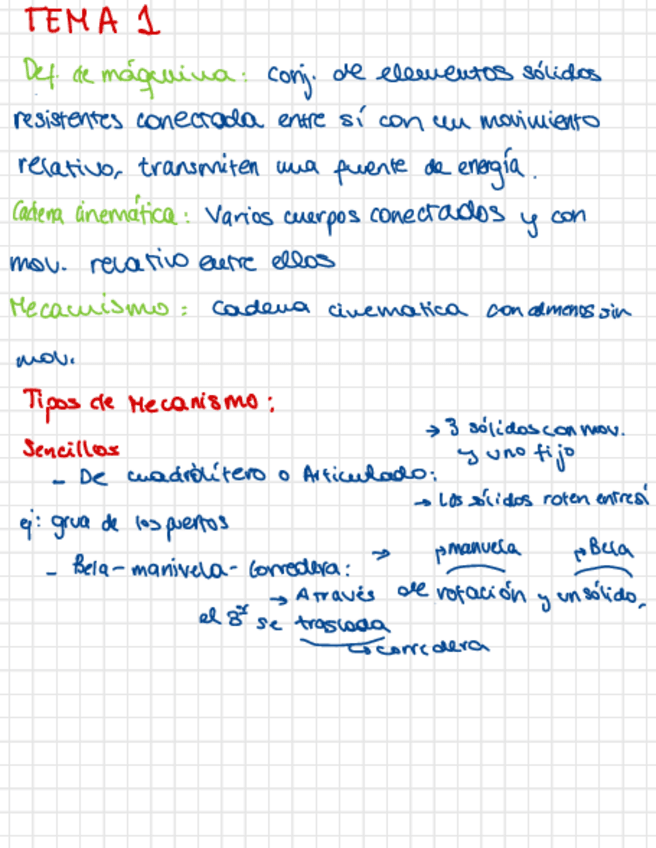 TEMA 1
Def. de máquina: conj. de elementos sólidos
resistentes conectada entre sí con un movimiento
relativo, transmiten una fuente de energía.
Cadena cinemática: Varios cuerpos conectados y con
mov. relativo entre ellos
Mecanismo: cadena cinematica con almenos sin
mov.
Tipos de Mecanismo:
→ 3 sólidos con mov.
y uno fijo
Sencillos
- De cuadrilítero o Articulado:
→ Los sólidos roten entre sí
ej: grua de los puertos
- Bela-manivela-Corredera: → manuela Bela
→ Através de rotación y un sólido,
el se traslada
↳ corredera